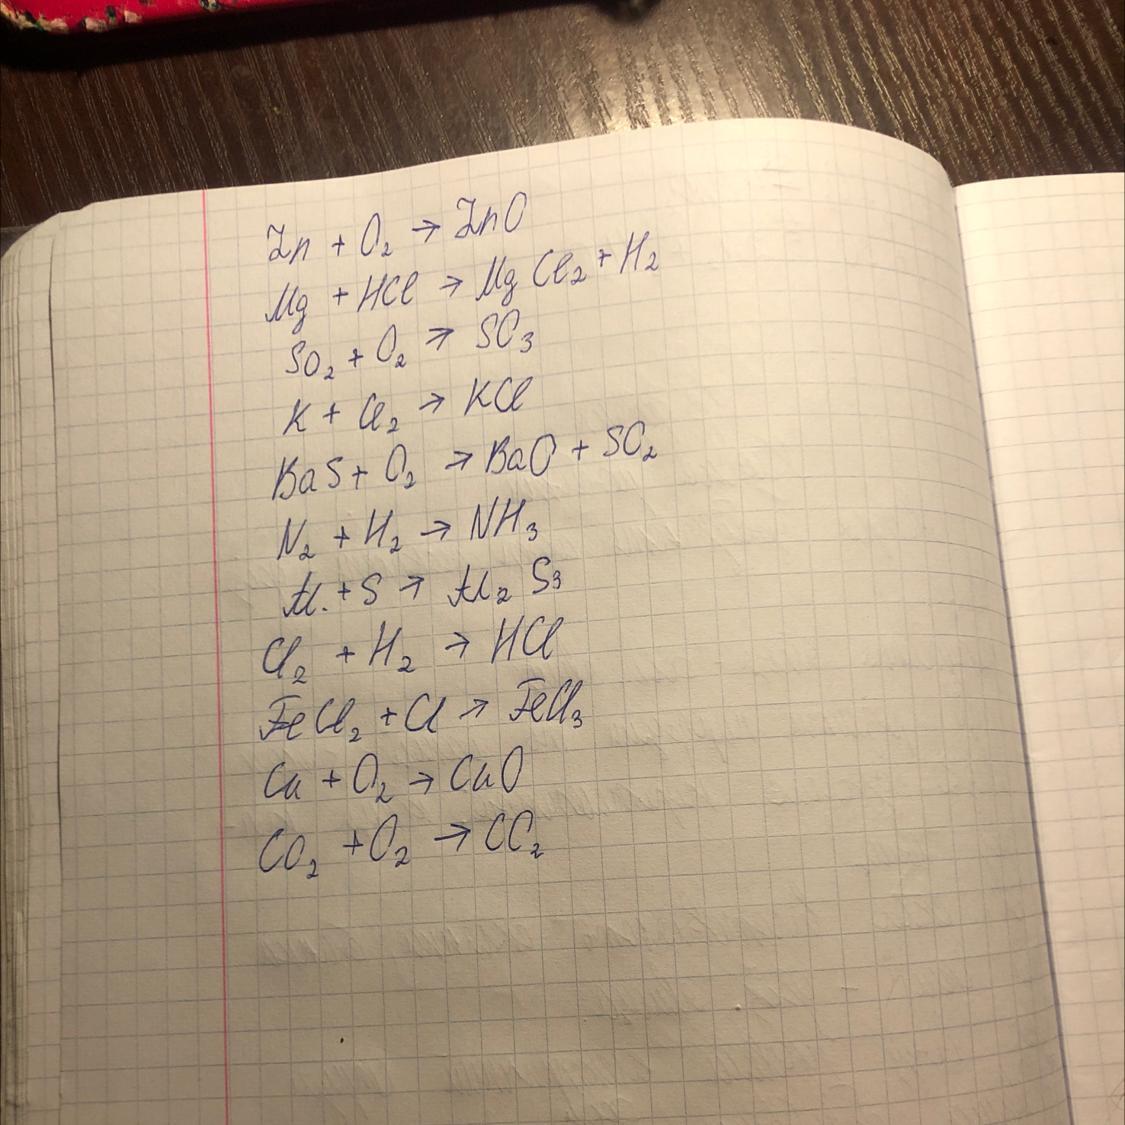 Zn + O₂ → ZnO
Mg + HCl → MgCl₂ + H₂
SO₂ + O₂ → SO₃
K + Cl₂ → KCl
BaS + O₂ → BaO + SO₂
N₂ + H₂ → NH₃
Al + S → Al₂S₃
Cl₂ + H₂ → HCl
FeCl₂ + Cl → FeCl₃
Ca + O₂ → CaO
CO₂ + O₂ → CO₂